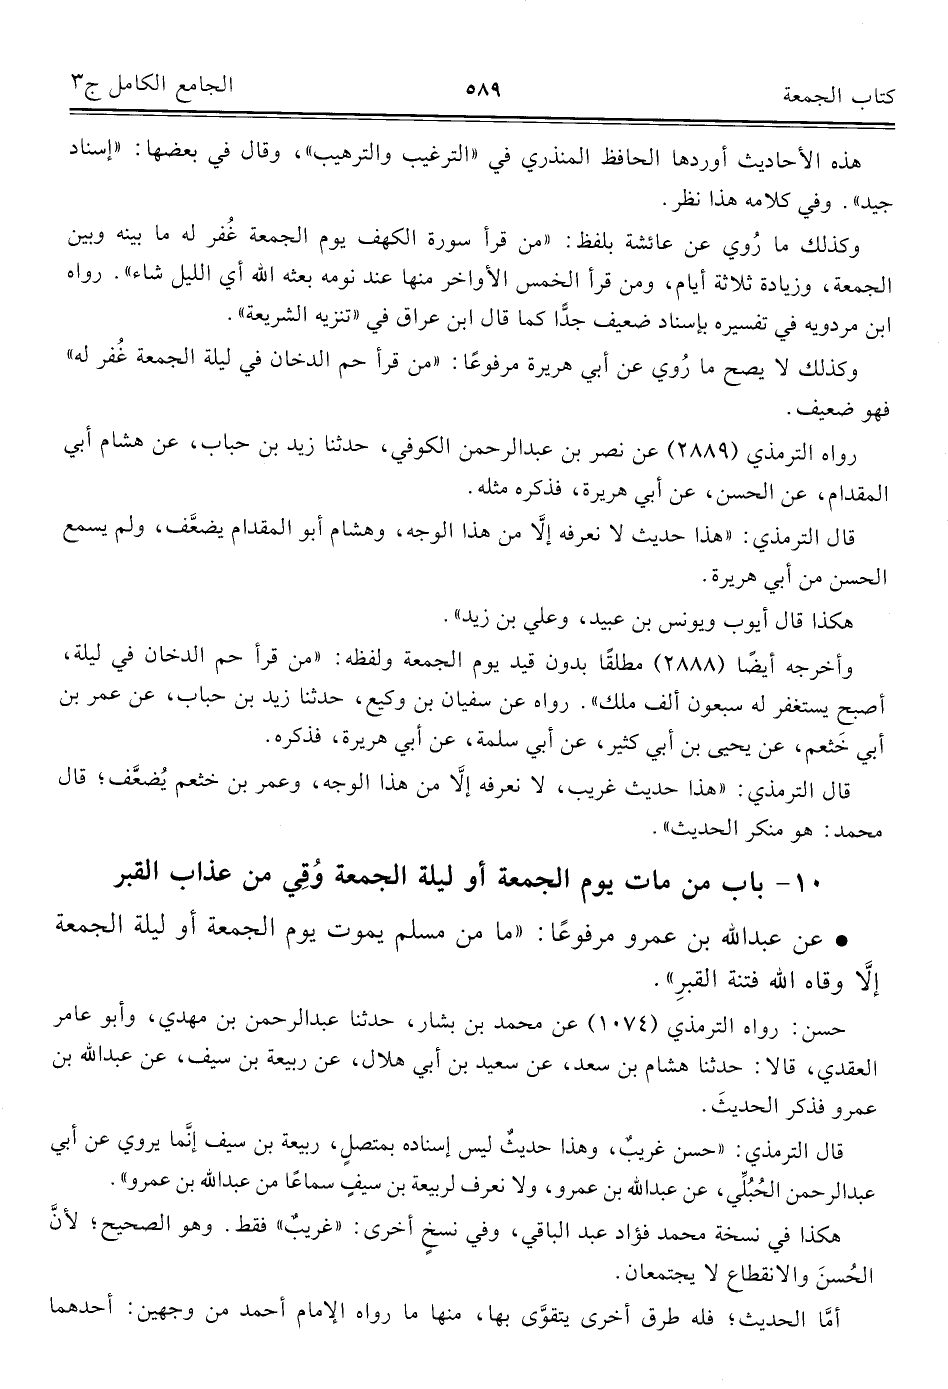 كتاب الجمعة ٥٨٩ الجامع الكامل ج٣
هذه الأحاديث أوردها الحافظ المنذري في «الترغيب والترهيب»، وقال في بعضها: «إسناد
جيد». وفي كلامه هذا نظر.
وكذلك ما رُوي عن عائشة بلفظ: «من قرأ سورة الكهف يوم الجمعة غُفر له ما بينه وبين
الجمعة، وزيادة ثلاثة أيام، ومن قرأ الخمس الأواخر منها عند نومه بعثه الله أي الليل شاء». رواه
ابن مردويه في تفسيره بإسناد ضعيف جدًّا كما قال ابن عراق في «تنزيه الشريعة».
وكذلك لا يصح ما رُوي عن أبي هريرة مرفوعًا: «من قرأ حم الدخان في ليلة الجمعة غُفر له»
فهو ضعيف.
رواه الترمذي (٢٨٨٩) عن نصر بن عبدالرحمن الكوفي، حدثنا زيد بن حباب، عن هشام أبي
المقدام، عن الحسن، عن أبي هريرة، فذكره مثله.
قال الترمذي: «هذا حديث لا نعرفه إلَّا من هذا الوجه، وهشام أبو المقدام يضعَّف، ولم يسمع
الحسن من أبي هريرة.
هكذا قال أيوب ويونس بن عبيد، وعلي بن زيد».
وأخرجه أيضًا (٢٨٨٨) مطلقًا بدون قيد يوم الجمعة ولفظه: «من قرأ حم الدخان في ليلة،
أصبح يستغفر له سبعون ألف ملك». رواه عن سفيان بن وكيع، حدثنا زيد بن حباب، عن عمر بن
أبي خَثعم، عن يحيى بن أبي كثير، عن أبي سلمة، عن أبي هريرة، فذكره.
قال الترمذي: «هذا حديث غريب، لا نعرفه إلَّا من هذا الوجه، وعمر بن خثعم يُضعَّف؛ قال
محمد: هو منكر الحديث».
١٠- باب من مات يوم الجمعة أو ليلة الجمعة وُقِي من عذاب القبر
● عن عبدالله بن عمرو مرفوعًا: «ما من مسلم يموت يوم الجمعة أو ليلة الجمعة
إلَّا وقاه الله فتنة القبرِ».
حسن: رواه الترمذي (١٠٧٤) عن محمد بن بشار، حدثنا عبدالرحمن بن مهدي، وأبو عامر
العقدي، قالا: حدثنا هشام بن سعد، عن سعيد بن أبي هلال، عن ربيعة بن سيف، عن عبدالله بن
عمرو فذكر الحديثَ.
قال الترمذي: «حسن غريبٌ، وهذا حديثٌ ليس إسناده بمتصلٍ، ربيعة بن سيف إنَّما يروي عن أبي
عبدالرحمن الحُبُلِّي، عن عبدالله بن عمرو، ولا نعرف لربيعة بن سيفٍ سماعًا من عبدالله بن عمرو».
هكذا في نسخة محمد فؤاد عبد الباقي، وفي نسخٍ أخرى: «غريبٌ» فقط. وهو الصحيح؛ لأنَّ
الحُسنَ والانقطاع لا يجتمعان.
أمَّا الحديث؛ فله طرق أخرى يتقوَّى بها، منها ما رواه الإمام أحمد من وجهين: أحدهما